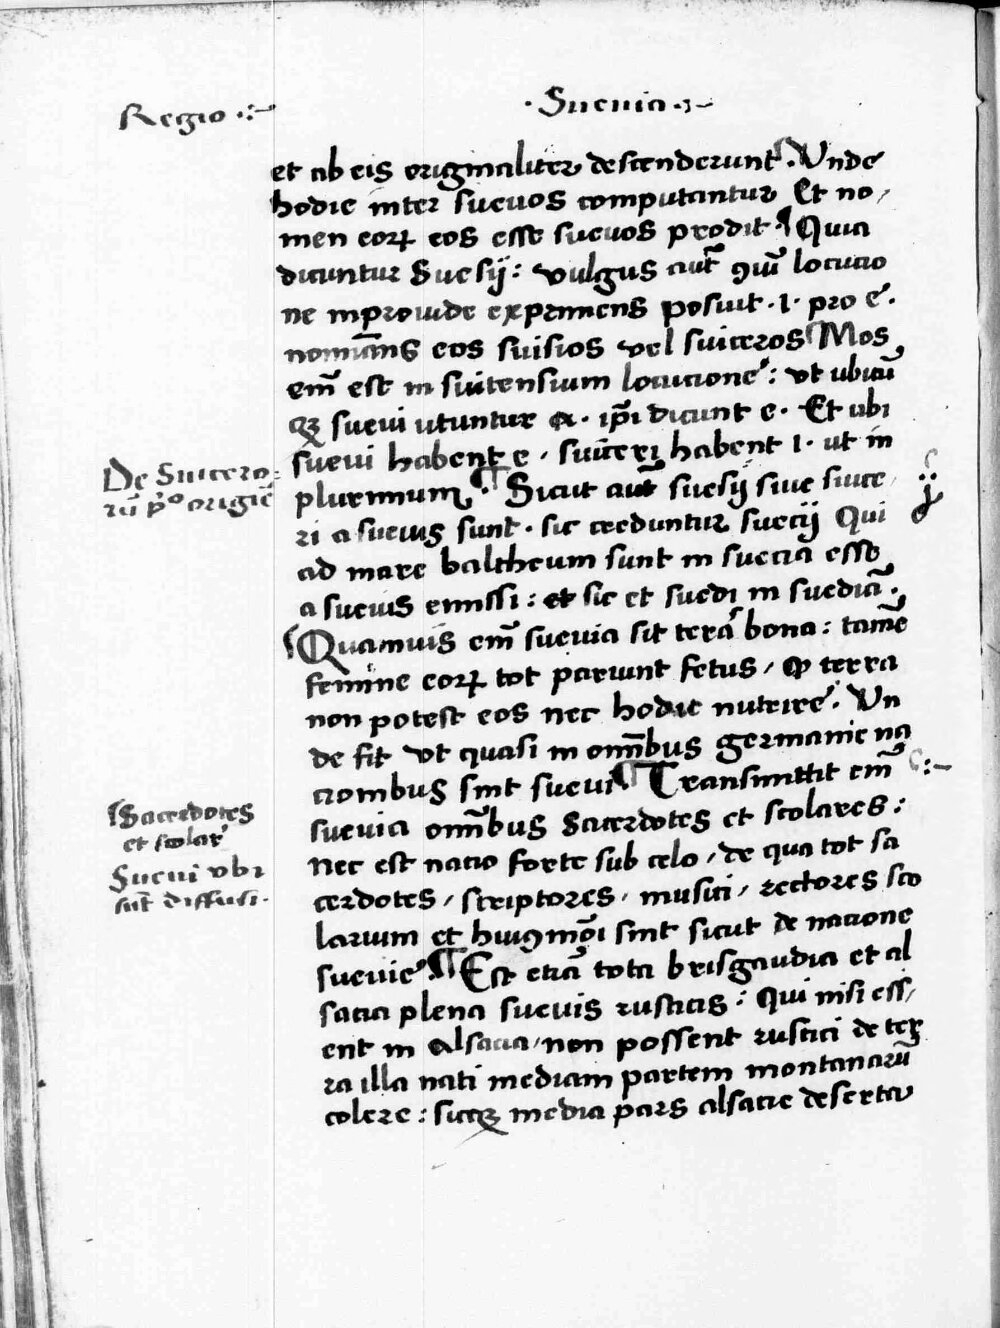 Regio .:~
. Sueuia .:~
et ab eis originaliter descenderunt . Vnde
hodie inter sueuos computantur Et no/
men eorꝝ eos esse sueuos prodit ¶ Quia
dicuntur Suesij : vulgus aut̃ ꝯiũ locucio
ne inprouide exprimens posuit . i . pro e .
nomiãns eos suisios vel suiceros ¶ Mos
em̃ est in suitensium locucione : vt ubicũ
qꝫ sueui utuntur a . ip̃i dicunt e . Et ubi
sueui habent e . suiceri habent i . ut in
plurimum . ¶ Sicut aut̃ suesij siue suice/
ri a sueuis sunt . sic creduntur suecij Qui
ad mare baltheum sunt in suecia esse
a sueuis emissi : et sic et suedi in suediã .
¶ Quamuis em̃ sueuia sit terã bona : tamẽ
femine eorꝝ tot pariunt fetus / ꝙ terra
non potest eos nec hodie nutrire . Vn
de fit vt quasi in om̃ibus germanie na
cionibus sint sueui ¶ Transmittit em̃
sueuia om̃ibus Sacerdotes et scolares :
Nec est nacio forte sub celo / de qua tot sa
cerdotes / scriptores / musici / rectores sco
larium et huiꝯmõi sint sicut de nacione
sueuie ¶ Est etiã tota brisgaudia et al
sacia plena sueuis rusticis : Qui nisi ess/
ent in Alsacia / non possent rustici de ter
ra illa nati mediam partem montanarũ
colere : sicqꝫ media pars alsacie deserta
De Suicero/
rũ p͛o origiẽ
¶ Sacerdotes
et scolar͛
Sueui vbi
sũt diffusi .